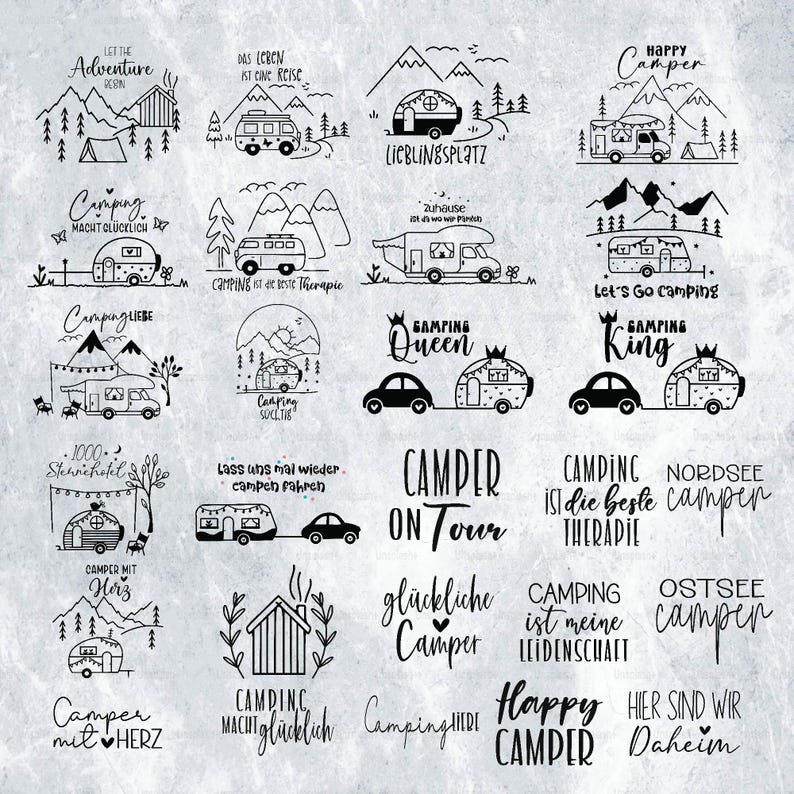 LET THE
Adventure
BEGIN
DAS LEBEN
IST EINE REISE
LIEBLINGSPLATZ
HAPPY
Camper
Camping
MACHT GLÜCKLICH
CAMPING IST DIE BESTE Therapie
zuhause
ist da wo wir parken
Let's Go Camping
Camping LIEBE
Camping
SÜCHTIG
CAMPING
Queen
CAMPING
King
1000
Sternehotel
Lass uns mal wieder
campen fahren
CAMPER
ON Tour
CAMPING
IST die beste
THERAPIE
NORDSEE
camper
CAMPER MIT
Herz
CAMPING
MACHT glücklich
glückliche
Camper
CAMPING
ist meine
LEIDENSCHAFT
OSTSEE
camper
Camper
mit HERZ
Camping LIEBE
Happy
CAMPER
HIER SIND WIR
Daheim